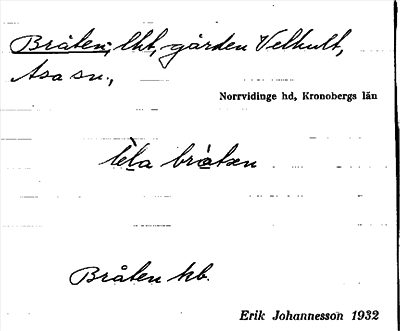 Bråten, lht, gården Velhult,
Asa sn,
Norrvidinge hd, Kronobergs län
bråtən
Bråten hb.
Erik Johannesson 1932